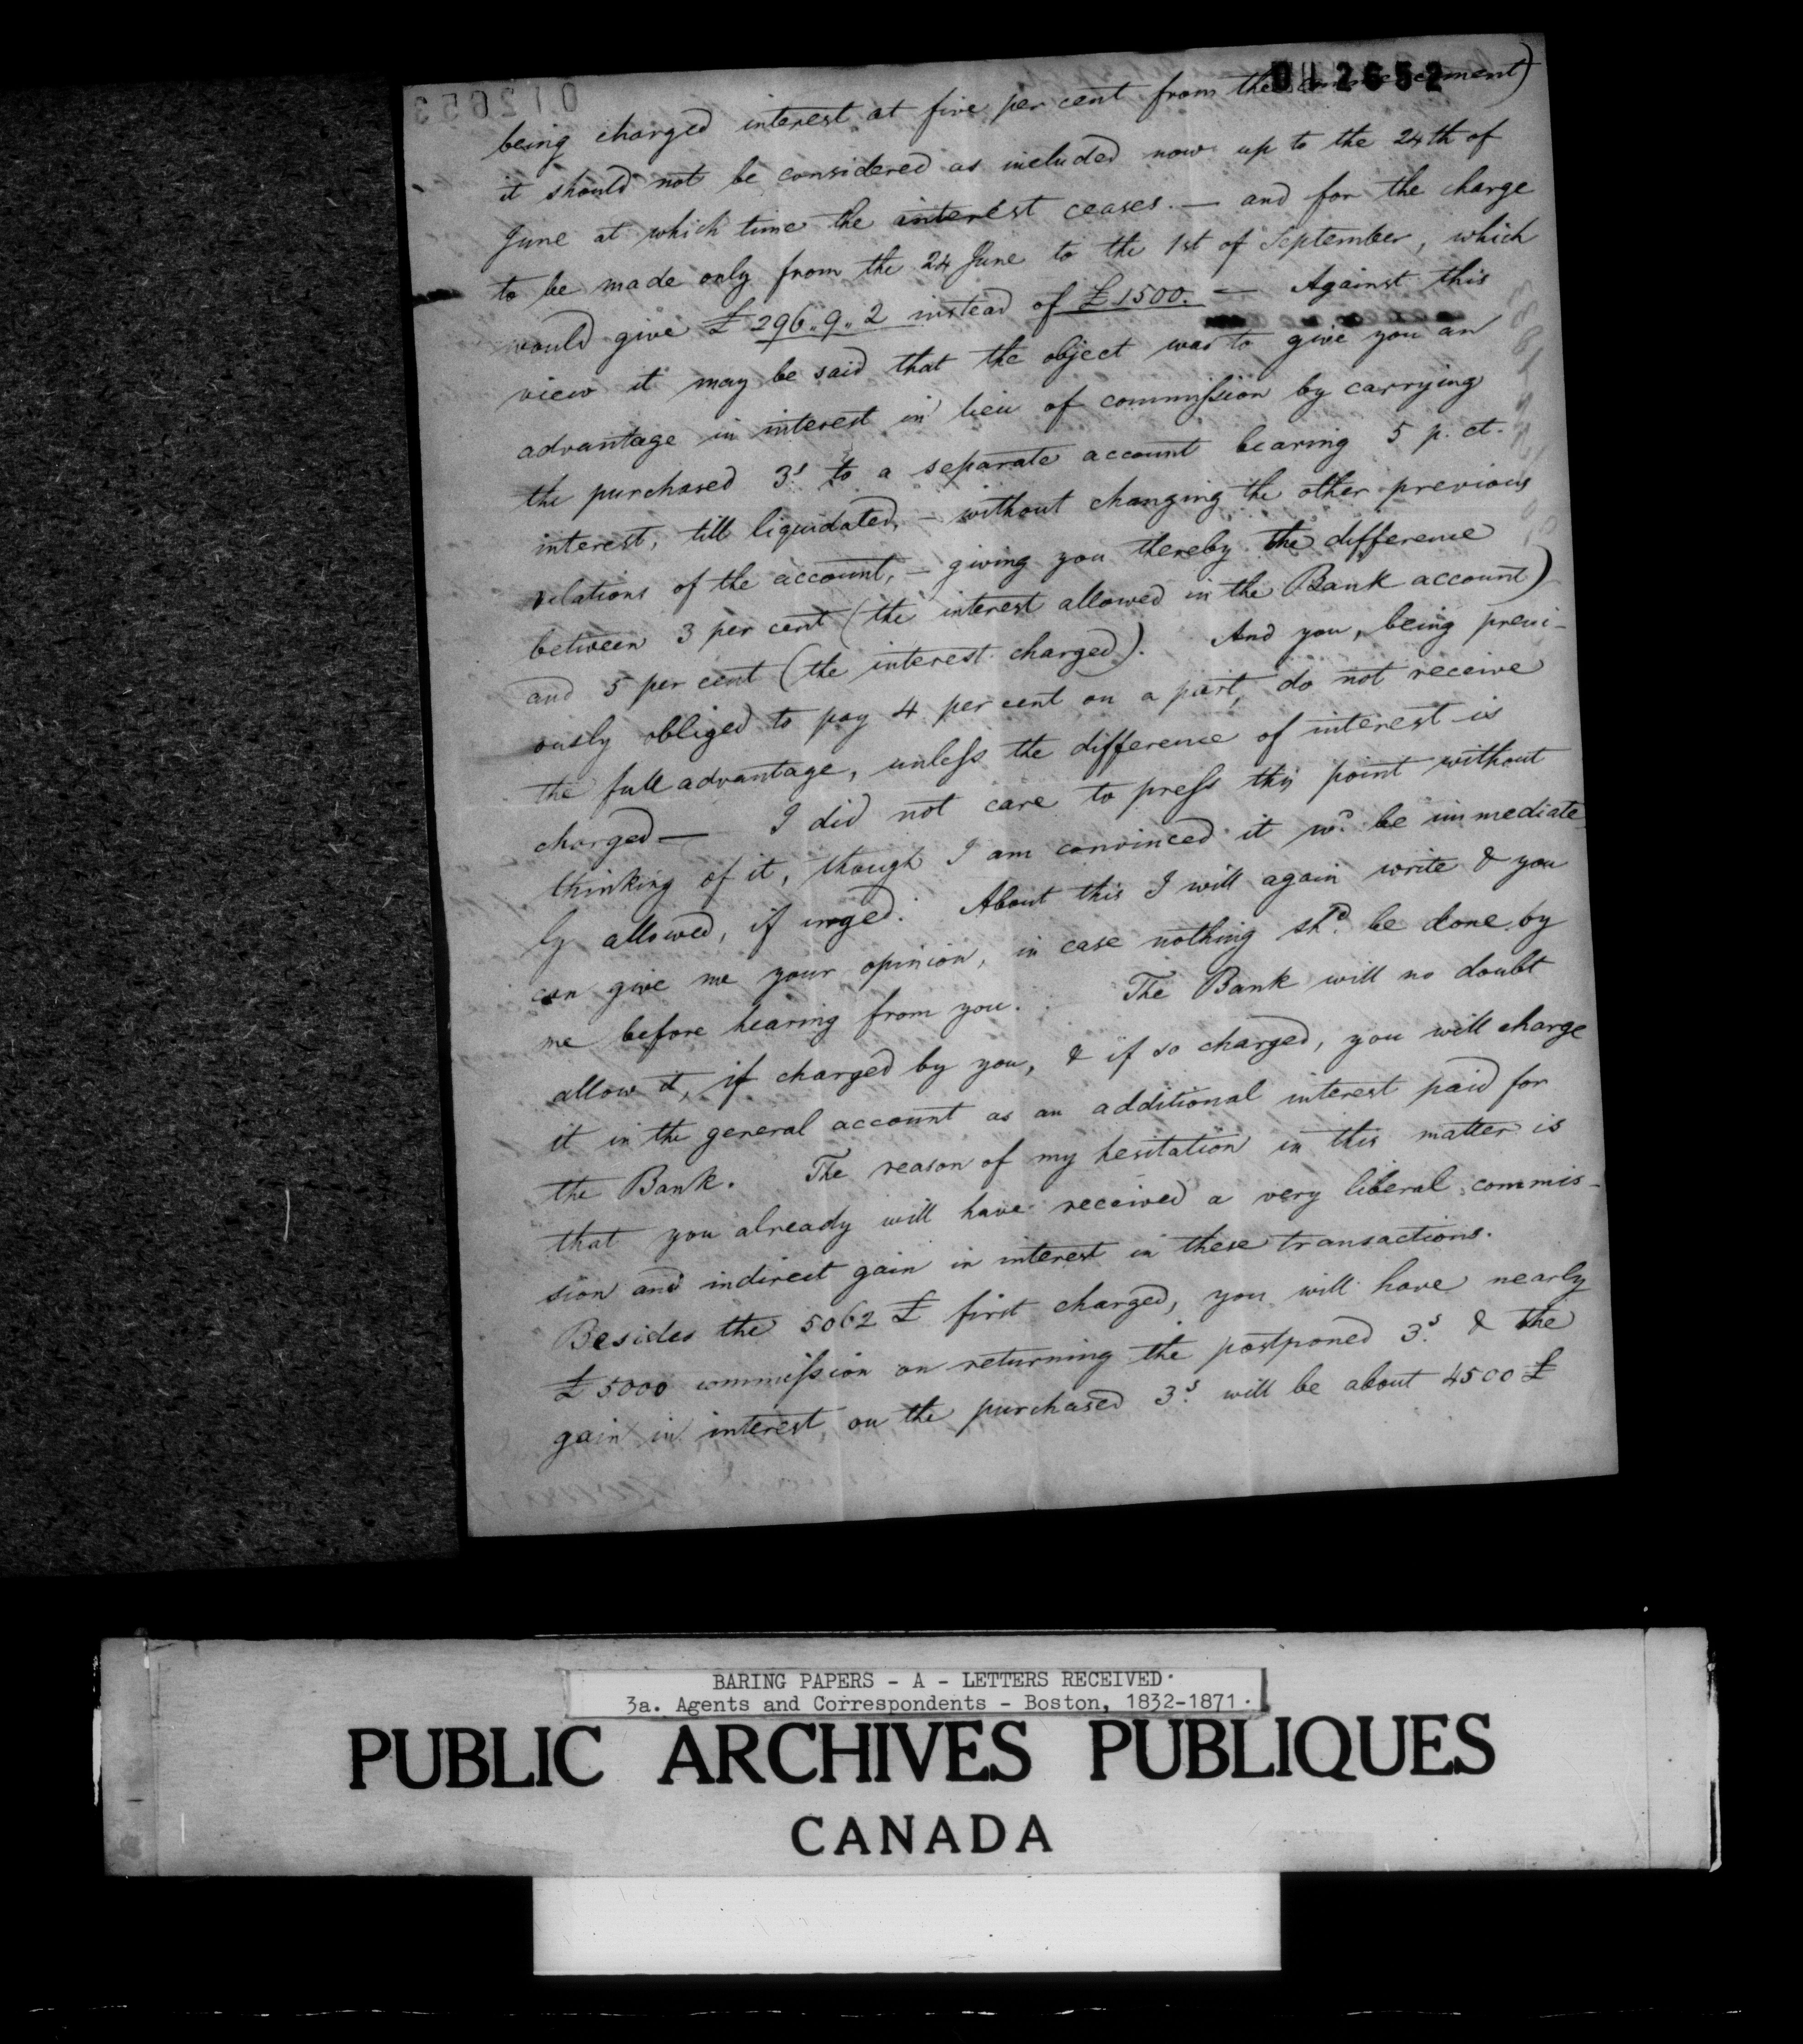 012652
being charged interest at five per cent from the commencement)
it should not be considered as included now up to the 24th of
June at which time the interest ceases. — and for the charge
to be made only from the 24 June to the 1st of September, which
would give £296..9..2 instead of £1500. — Against this
view it may be said that the object was to give you an
advantage in interest in lieu of commission by carrying
the purchased 3s to a separate account bearing 5 p. ct.
interest, till liquidated, — without changing the other previous
relations of the account, — giving you thereby the difference
between 3 per cent (the interest allowed in the Bank account)
and 5 per cent (the interest charged). And you, being previ-
ously obliged to pay 4 per cent on a part, do not receive
the full advantage, unless the difference of interest is
charged — I did not care to press this point without
thinking of it, though I am convinced it wd. be immediate
ly allowed, if urged. About this I will again write & you
can give me your opinion, in case nothing shd. be done by
me before hearing from you. The Bank will no doubt
allow it, if charged by you, & if so charged, you will charge
it in the general account as an additional interest paid for
the Bank. The reason of my hesitation in this matter is
that you already will have received a very liberal commis-
sion and indirect gain in interest in these transactions.
Besides the 5062 £ first charged, you will have nearly
£5000 commission on returning the postponed 3s & the
gain in interest, on the purchased 3s will be about 4500 £
BARING PAPERS - A - LETTERS RECEIVED
3a. Agents and Correspondents - Boston, 1832-1871.
PUBLIC ARCHIVES PUBLIQUES
CANADA